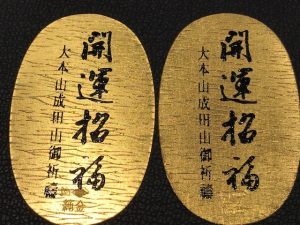 開運招福
大本山成田山御祈祷
純金
開運招福
大本山成田山御祈祷